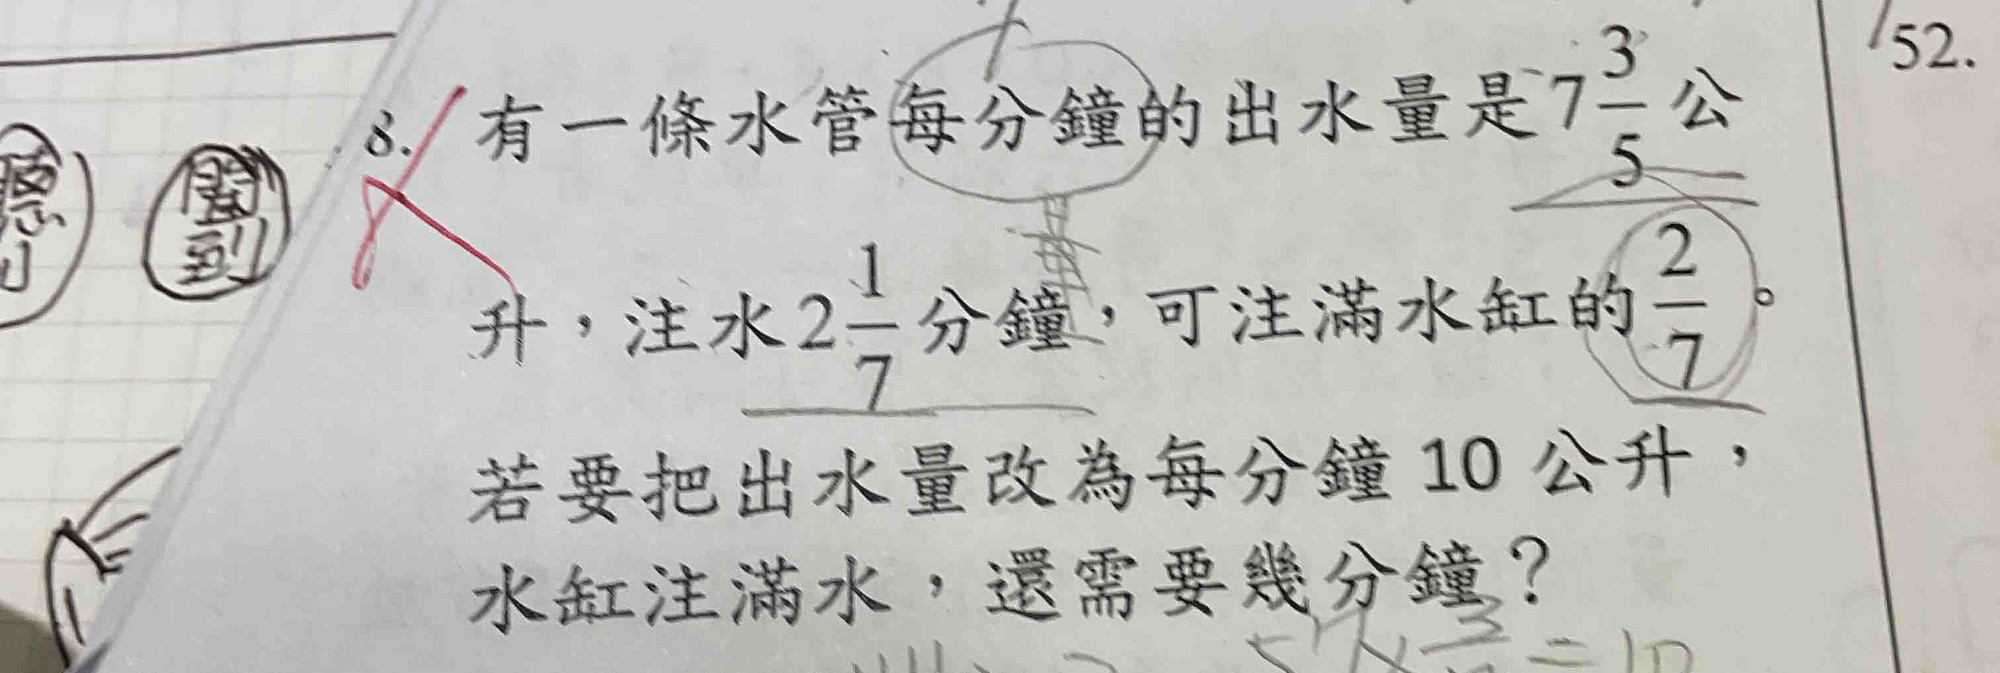 8. 有一條水管每分鐘的出水量是7 3/5 公
升，注水2 1/7 分鐘，可注滿水缸的 2/7。
若要把出水量改為每分鐘 10 公升，
水缸注滿水，還需要幾分鐘？
52.